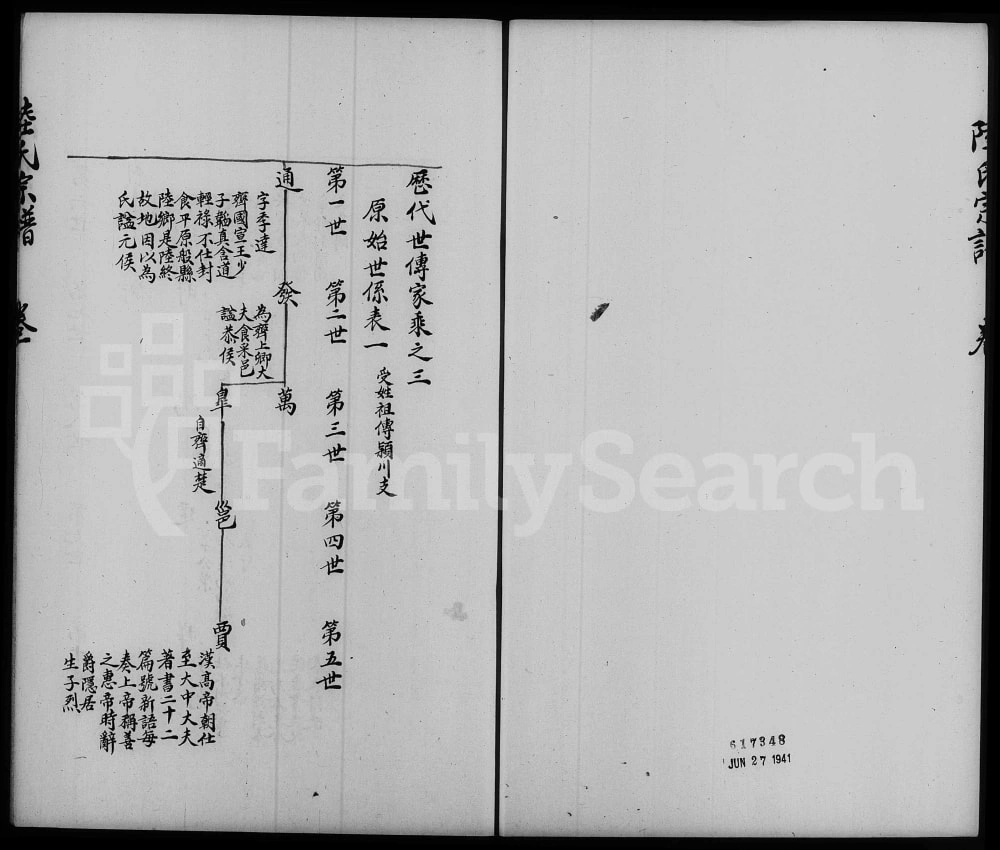 歷代世傳家乘之三
原始世係表一 受姓祖傳潁川支
第一世 第二世 第三世 第四世 第五世
通
字季達
齊國宣王少
子韜真含道
輕祿不仕封
食平原般縣
陸鄉是陸終
故地因以為
氏謚元侯
發
為齊上卿大
夫食采邑
謚恭侯
萬
皐
自齊適楚
邕
賈
漢高帝朝仕
至大中大夫
著書二十二
篇號新語每
奏上帝稱善
之惠帝時辭
爵隱居
生子烈
陸氏宗譜
陸氏宗譜 卷
617348
JUN 27 1941
FamilySearch